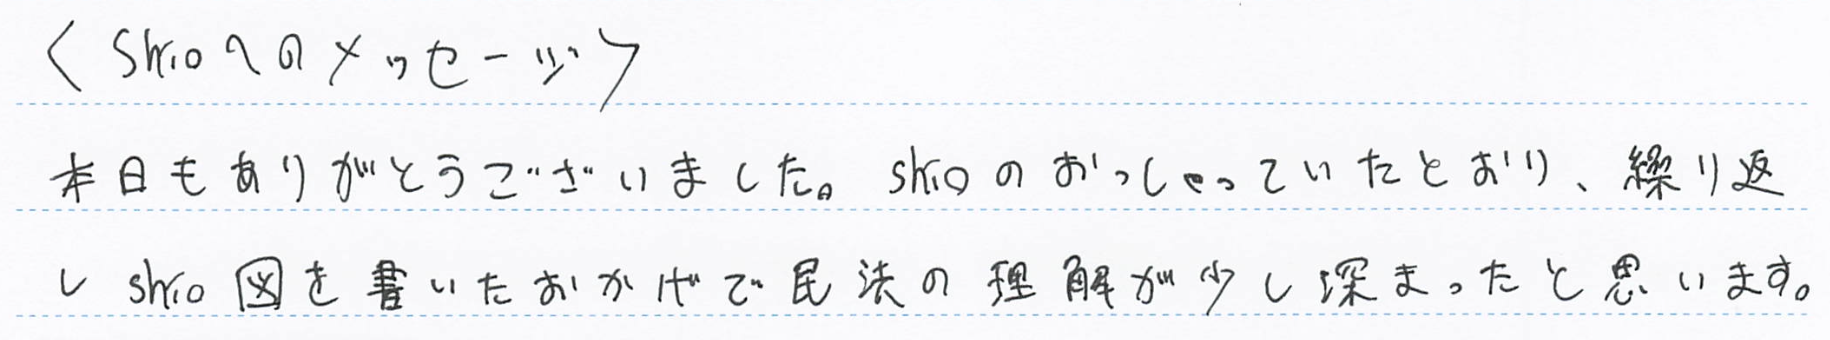 〈shioへのメッセージ〉
本日もありがとうございました。shioのおっしゃっていたとおり、繰り返
しshio図を書いたおかげで民法の理解が少し深まったと思います。